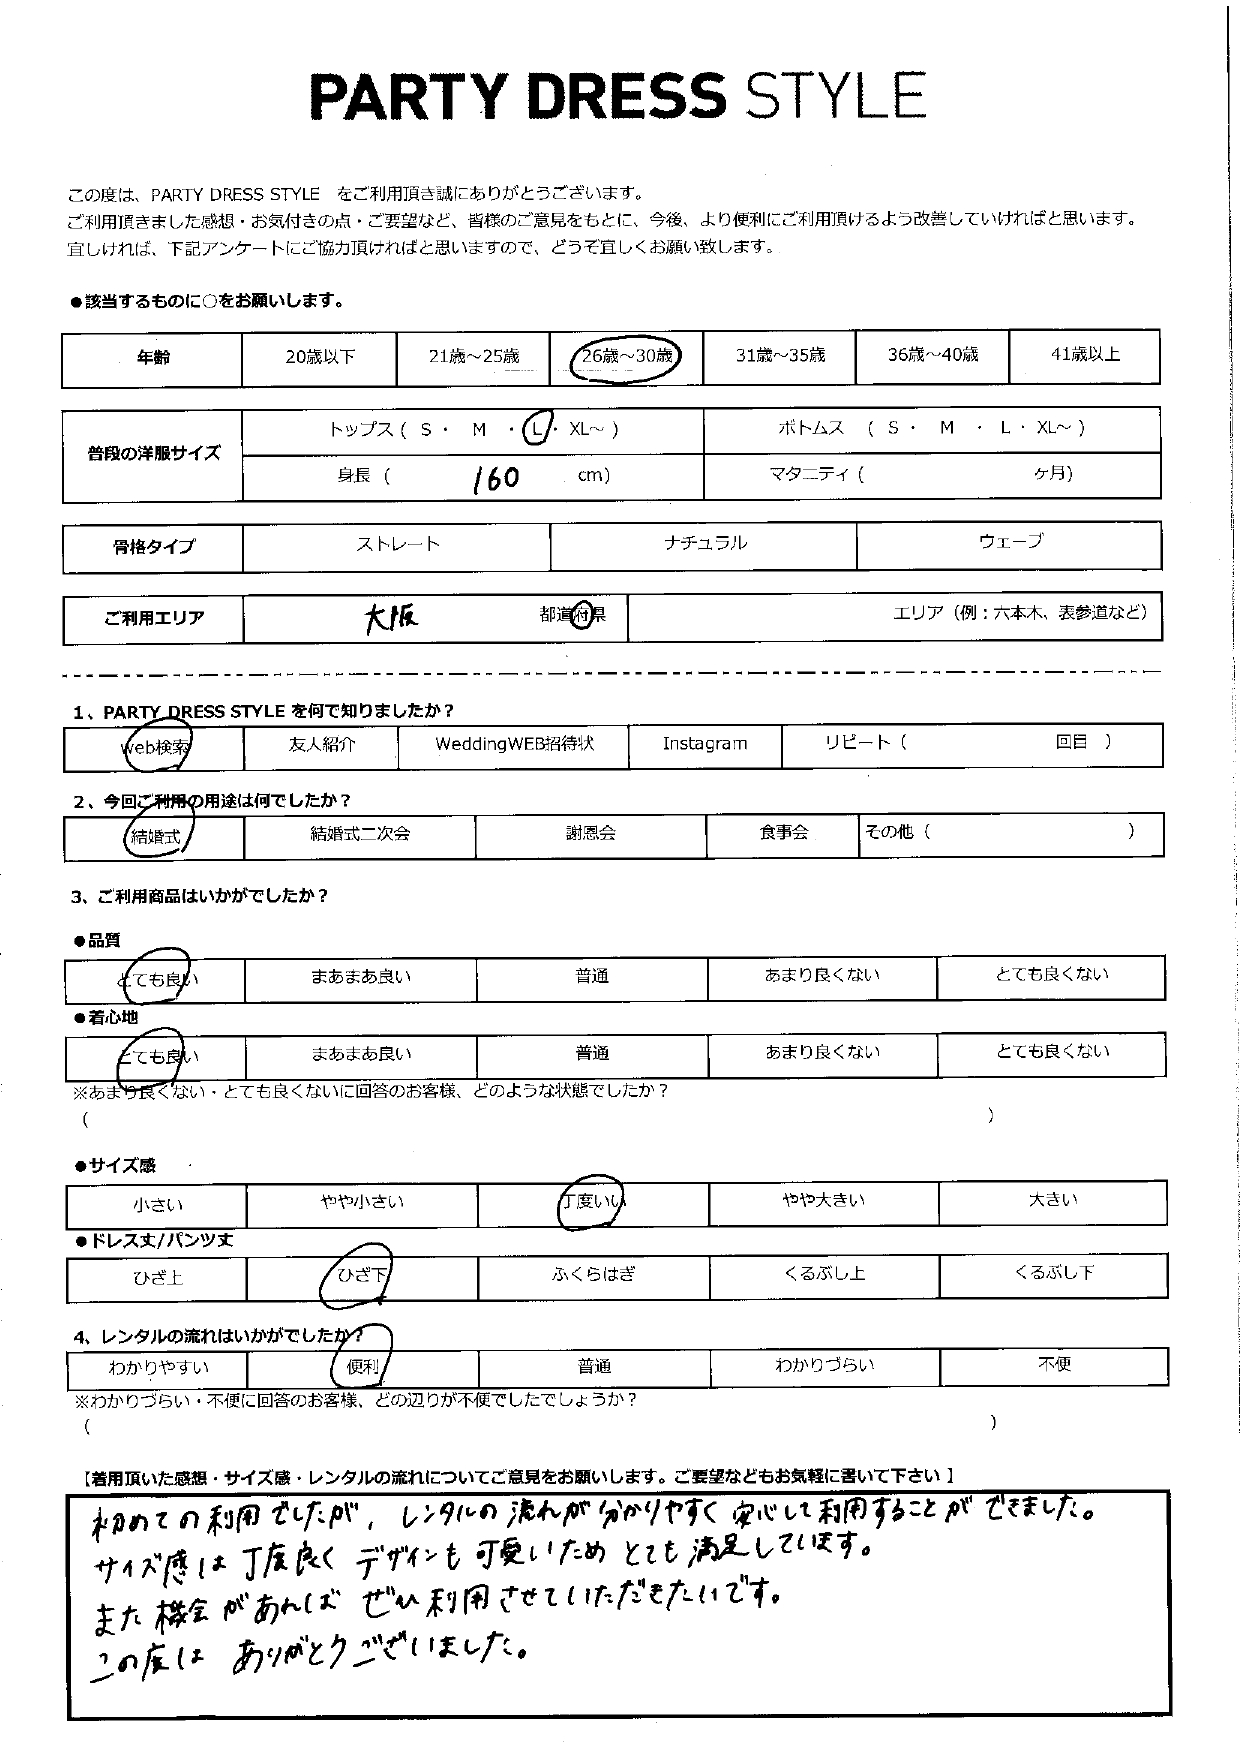 PARTY DRESS STYLE
この度は、PARTY DRESS STYLE をご利用頂き誠にありがとうございます。
ご利用頂きました感想・お気付きの点・ご要望など、皆様のご意見をもとに、今後、より便利にご利用頂けるよう改善していければと思います。
宜しければ、下記アンケートにご協力頂ければと思いますので、どうぞ宜しくお願い致します。
●該当するものに○をお願いします。
年齢 20歳以下 21歳～25歳 26歳～30歳 31歳～35歳 36歳～40歳 41歳以上
普段の洋服サイズ トップス ( S ・ M ・ L ・ XL～ ) ボトムス ( S ・ M ・ L ・ XL～ )
身長 ( 160 cm) マタニティ ( ヶ月)
骨格タイプ ストレート ナチュラル ウェーブ
ご利用エリア 大阪 都道府県 エリア（例：六本木、表参道など）
1、PARTY DRESS STYLE を何で知りましたか？
Web検索 友人紹介 WeddingWEB招待状 Instagram リピート ( 回目 )
2、今回ご利用の用途は何でしたか？
結婚式 結婚式二次会 謝恩会 食事会 その他 ( )
3、ご利用商品はいかがでしたか？
●品質
とても良い まあまあ良い 普通 あまり良くない とても良くない
●着心地
とても良い まあまあ良い 普通 あまり良くない とても良くない
※あまり良くない・とても良くないに回答のお客様、どのような状態でしたか？
( )
●サイズ感
小さい やや小さい 丁度いい やや大きい 大きい
●ドレス丈/パンツ丈
ひざ上 ひざ下 ふくらはぎ くるぶし上 くるぶし下
4、レンタルの流れはいかがでしたか？
わかりやすい 便利 普通 わかりづらい 不便
※わかりづらい・不便に回答のお客様、どの辺りが不便でしたでしょうか？
( )
【着用頂いた感想・サイズ感・レンタルの流れについてご意見をお願いします。ご要望などもお気軽に書いて下さい】
初めての利用でしたが、レンタルの流れが分かりやすく安心して利用することができました。
サイズ感は丁度良くデザインも可愛いためとても満足しています。
また機会があればぜひ利用させていただきたいです。
この度はありがとうございました。